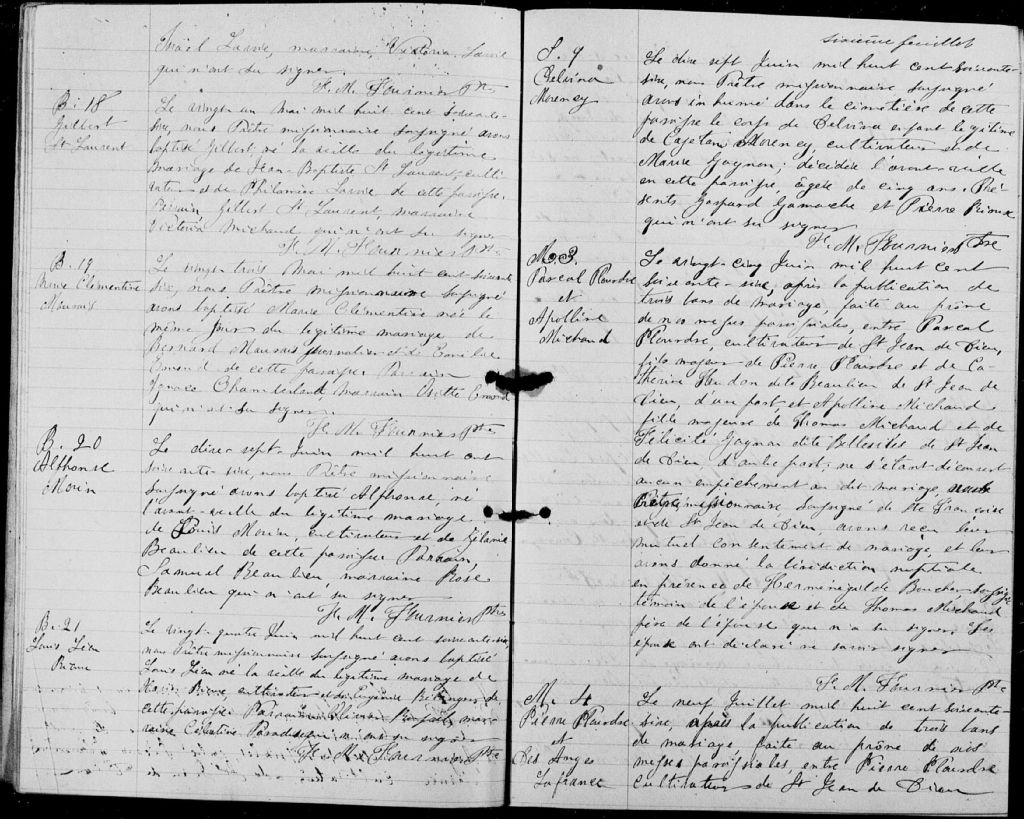 Joël Lavoie, marraine, Victoria Lavoie
qui n'ont su signer.
F. M. Fournier Ptre
B. 18
Gilbert
St Laurent
Le vingt-un mai mil huit cent soixante-
six, nous Prêtre missionnaire soussigné avons
baptisé Gilbert, né la veille du légitime
mariage de Jean-Baptiste St Laurent, culti-
vateur et de Philomène Lavoie de cette paroisse.
Parrain, Gilbert St Laurent, marraine
Victoria Michaud qui n'ont su signer
F. M. Fournier Ptre
B. 19
Marie Clémentine
Le vingt-trois Mai mil huit cent soixante
six, nous Prêtre missionnaire soussigné
avons baptisé Marie Clémentine née le
même jour du légitime mariage de
Bernard journalier et de Emélie
Emond de cette paroisse Parrain
Ignace Chamberland Marraine Emond
qui n'ont su signer.
F. M. Fournier Ptre
B. 20
Alphonse
Morin
Le dix-sept Juin mil huit cent
soixante-six, nous Prêtre missionnaire
soussigné avons baptisé Alphonse, né
l'avant-veille du légitime mariage
de Louis Morin, cultivateur et de Mélanie
Beaulieu de cette paroisse Parrain,
Samuel Beaulieu, marraine Rose
Beaulieu qui n'ont su signer
F. M. Fournier Ptre
B. 21
Louis Léon
Le vingt-quatre Juin mil huit cent soixante-six,
nous Prêtre missionnaire soussigné avons baptisé
Louis Léon né la veille du légitime mariage de
cultivateur et de Eugénie Bélanger de
cette paroisse Parrain mar-
raine Célestine Paradis qui n'ont su signer
F. M. Fournier Ptre
sixième feuillet
S. 7
Delvina
Morency
Le dix-sept Juin mil huit cent soixante-
six, nous Prêtre missionnaire soussigné
avons inhumé dans le cimetière de cette
paroisse le corps de Delvina enfant légitime
de Cajetan Morency, cultivateur et de
Marie Gagnon; décédée l'avant-veille
en cette paroisse, âgée de cinq ans. Pré-
sents Gaspard Gamache et Pierre Rioux
qui n'ont su signer
F. M. Fournier Ptre
M. 3.
Pascal Plourdre
et
Apolline
Michaud
Le vingt-cinq Juin mil huit cent
soixante-six, après la publication de
trois bans de mariage, faite au prône
de nos messes paroissiales, entre Pascal
Plourdre, cultivateur de St Jean de Dieu,
fils majeur de Pierre Plourdre et de Ca-
therine Hudon dite Beaulieu de St Jean de
Dieu, d'un part, et Apolline Michaud
fille majeure de Thomas Michaud et de
Félicité Gagnon dite Bellesîles de St Jean
de Dieu d'autre part; ne s'étant découvert
aucun empêchement au dit mariage, nous
Prêtre missionnaire, soussigné de Ste Françoise
et de St Jean de Dieu, avons reçu leur
mutuel consentement de mariage, et leur
avons donné la bénédiction nuptiale
en présence de Herménégilde Boucher
témoin de l'époux et de Thomas Michaud
père de l'épouse qui n'a su signer. Les
époux ont déclaré ne savoir signer
F. M. Fournier Ptre
M. 4
Pierre Plourdre
et
Des Anges
Lafrance
Le neuf Juillet mil huit cent soixante
six, après la publication de trois bans
de mariage, faite au prône de nos
messes paroissiales entre Pierre Plourdre
cultivateur de St Jean de Dieu